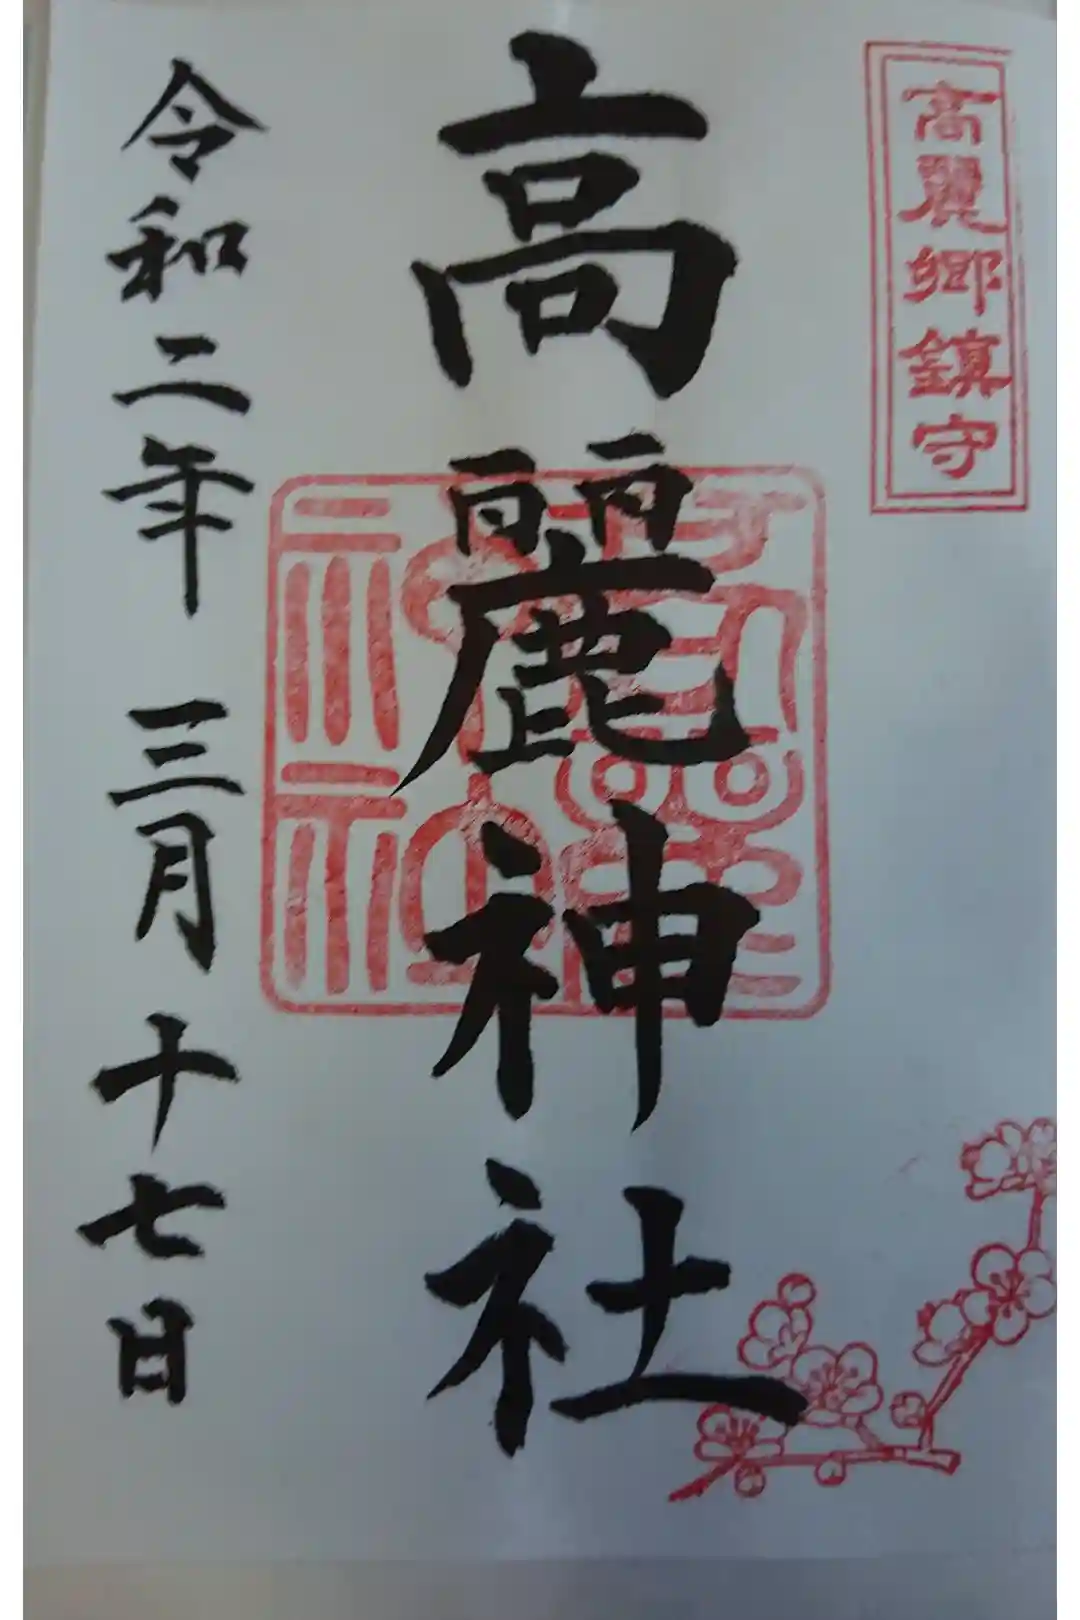 高麗郷鎮守
高麗神社
令和二年 三月十七日